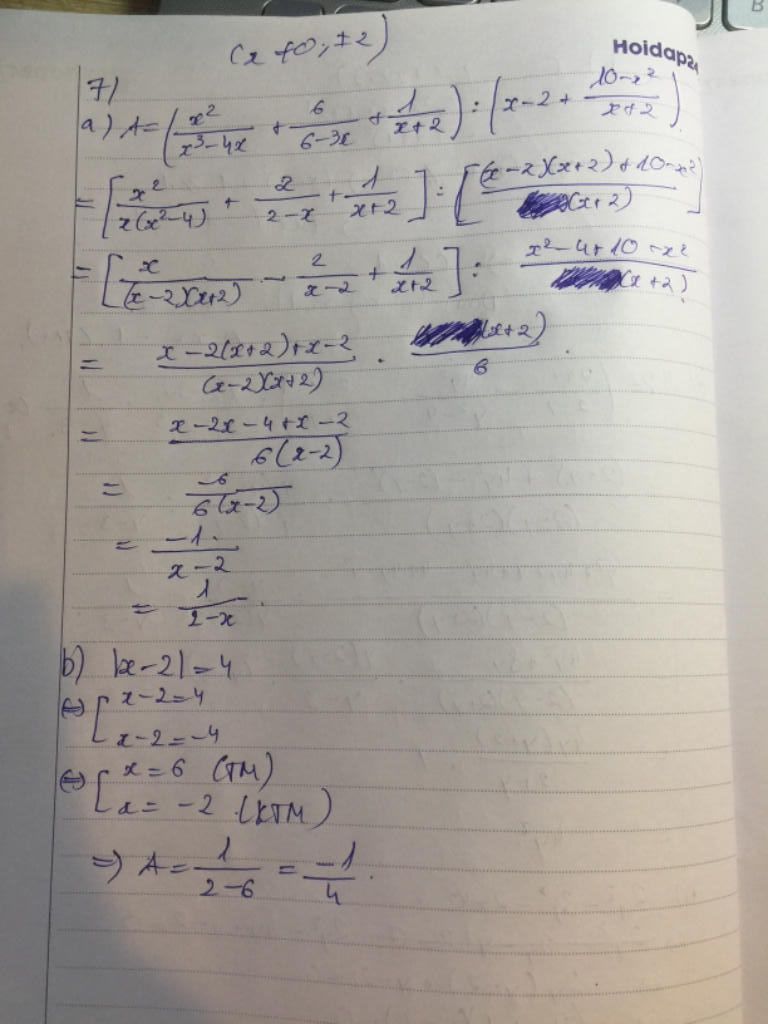 (x ≠ 0; ±2)
Hoidap24
7)
a) A = (x²/(x³-4x) + 6/(6-3x) + 1/(x+2)) : (x-2 + (10-x²)/(x+2))
= [x²/(x(x²-4)) + 2/(2-x) + 1/(x+2)] : [((x-2)(x+2)+10-x²)/(x+2)]
= [x/((x-2)(x+2)) - 2/(x-2) + 1/(x+2)] : (x²-4+10-x²)/(x+2)
= (x-2(x+2)+x-2)/((x-2)(x+2)) . (x+2)/6
= (x-2x-4+x-2)/(6(x-2))
= -6/(6(x-2))
= -1/(x-2)
= 1/(2-x).
b) |x-2| = 4
⇔ [ x-2=4
x-2=-4
⇔ [ x = 6 (TM)
x = -2 (KTM)
=> A = 1/(2-6) = -1/4.